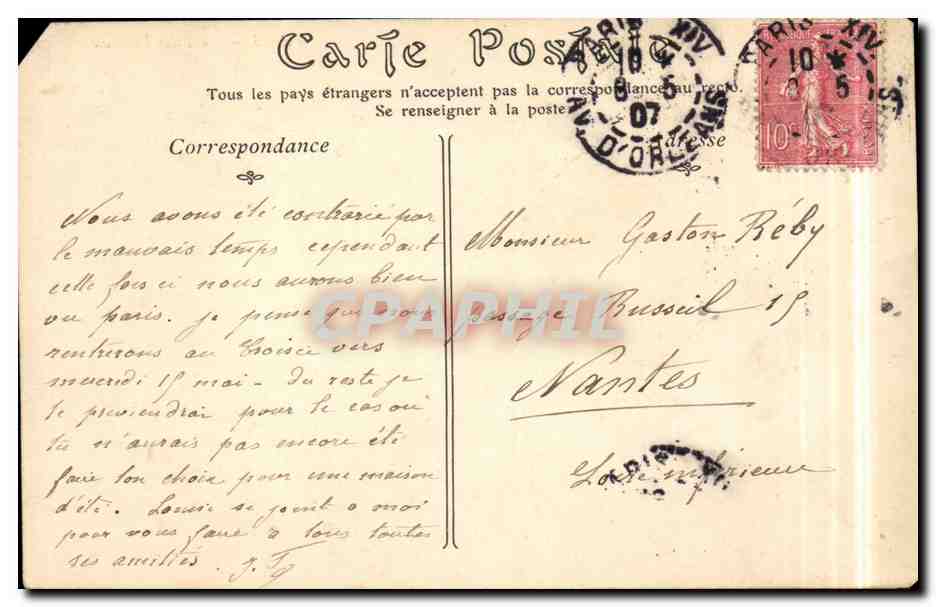 Carte Postale
Tous les pays étrangers n'acceptent pas la correspondance au recto.
Se renseigner à la poste
Correspondance
Adresse
PARIS XIV
10 *
8 5
07
AV. D'ORLEANS
PARIS XIV
10 *
8 5
10c
Nous avons été contrarié par
le mauvais temps cependant
cette fois ci nous aurons bien
vu paris. je pense que nous
rentrerons au Croisic vers
mercredi 15 mai - du reste je
te previendrai pour le cas où
tu n'aurais pas encore été
faire ton choix pour une maison
d'été. Louise se joint a moi
pour vous faire a tous toutes
ses amitiés.
Monsieur Gaston Réby
passage Russeil 15
Nantes
Loire inférieure
CPAPHIL